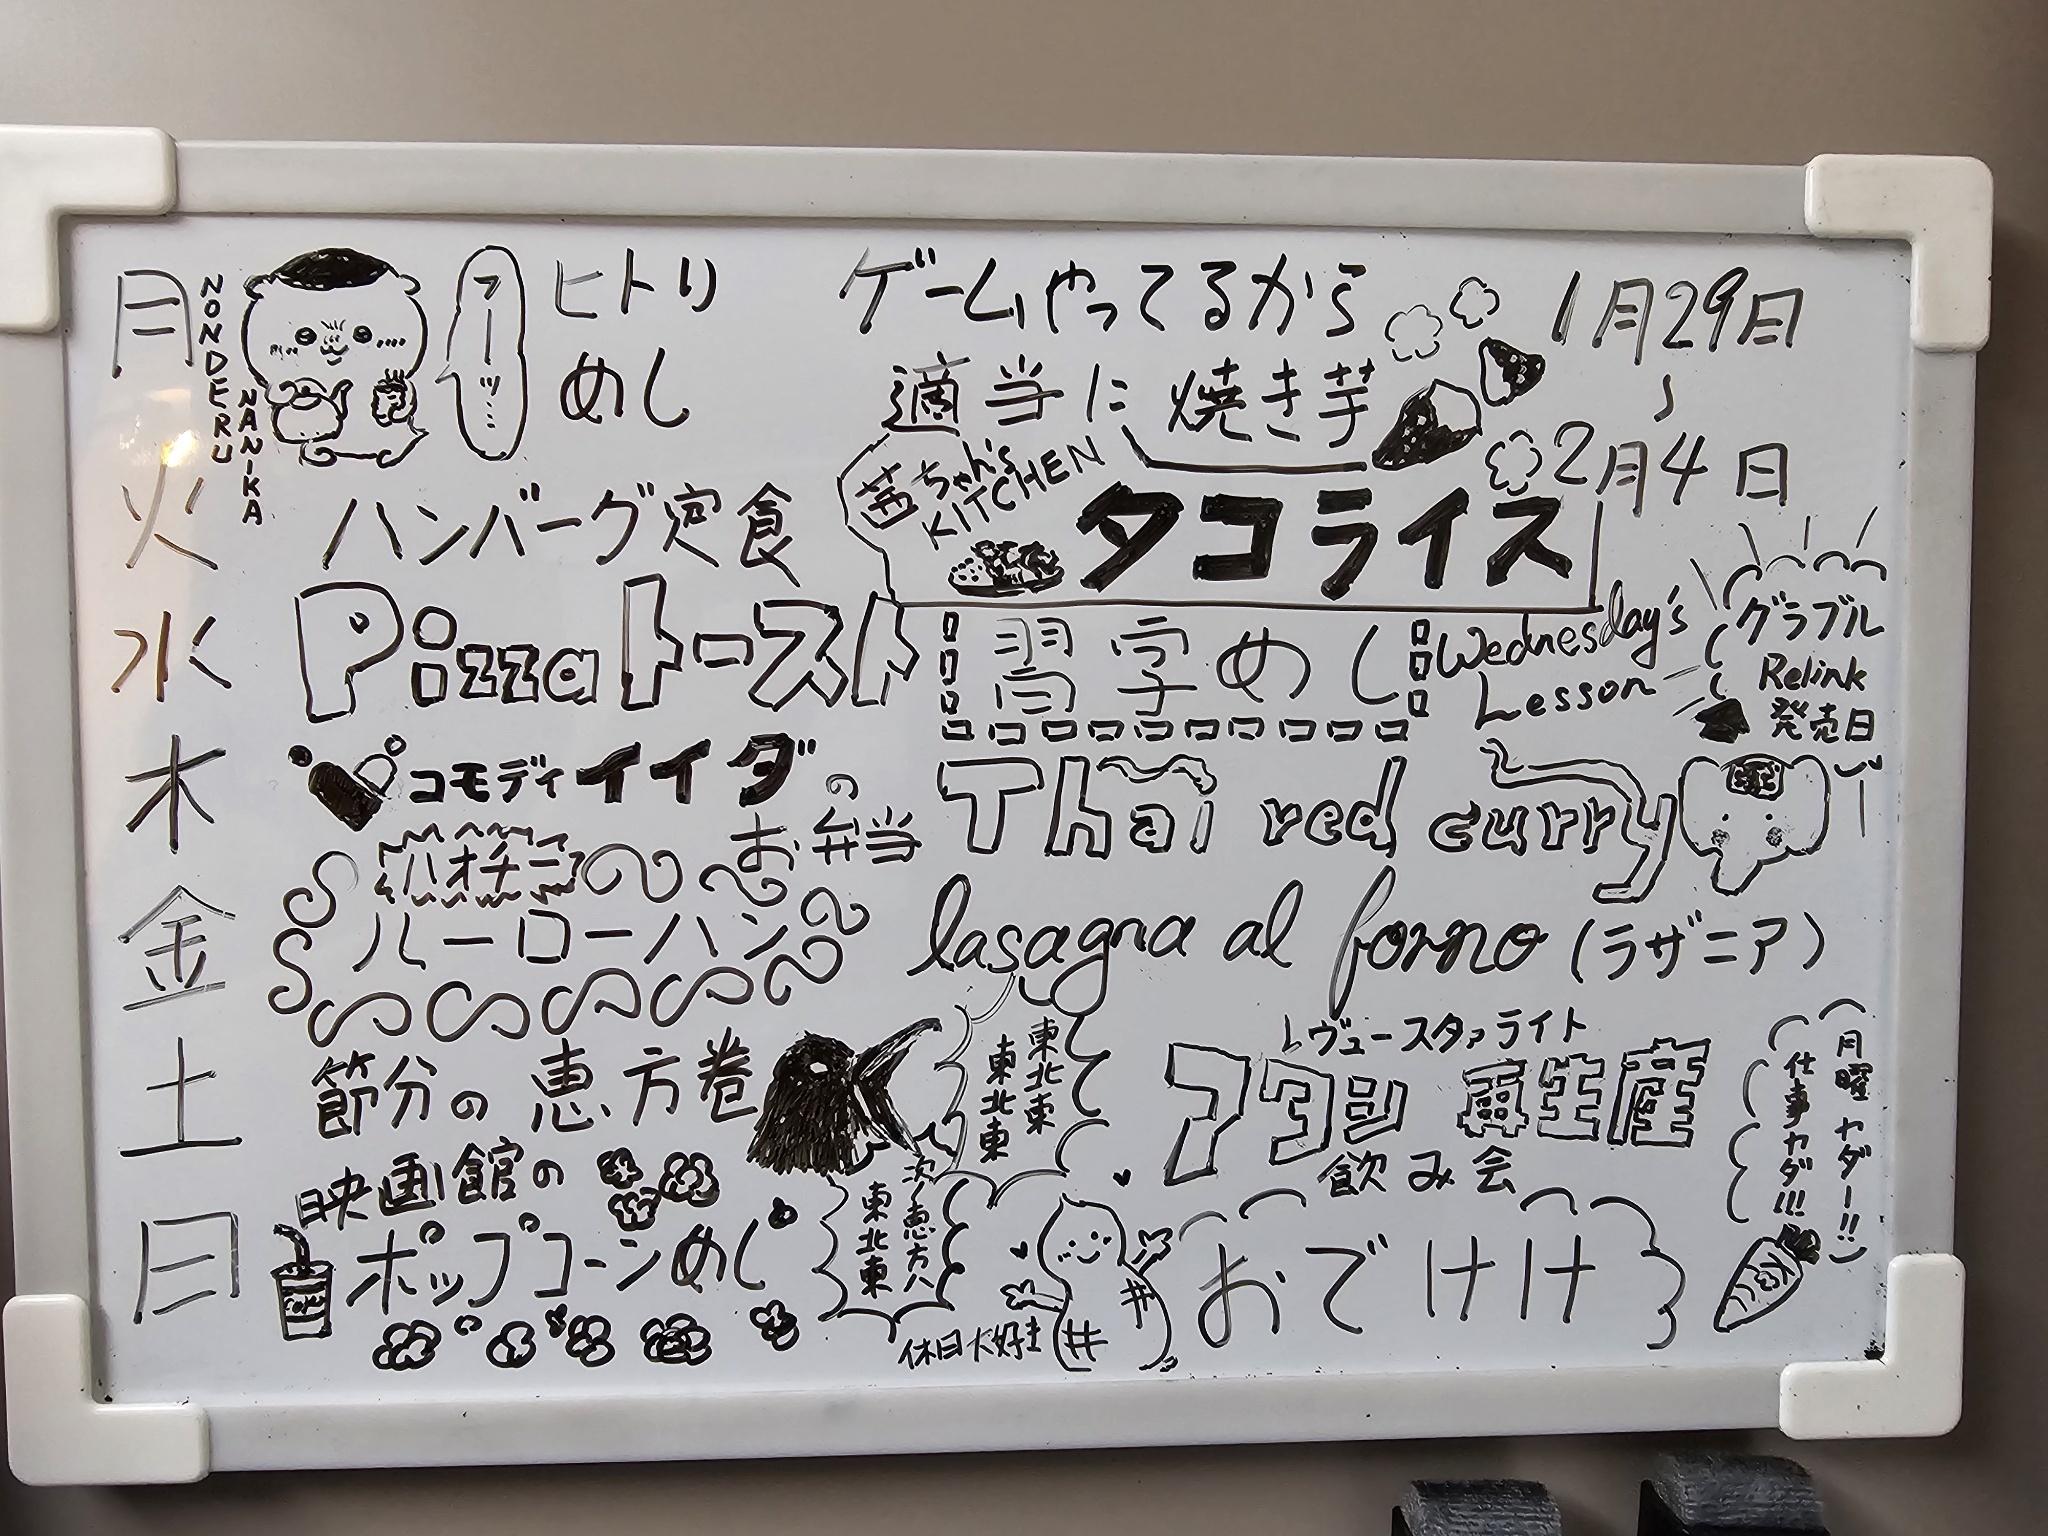 月
NONDERU
NANIKA
フーッ…
ヒトリ
めし
ゲームやってるから
適当に焼き芋
1月29日
〜
2月4日
火
ハンバーグ定食
茜ちゃん's
KITCHEN
タコライス
水
Pizzaトースト
習字めし
Wednesday's
Lesson
グラブル
Relink
発売日
木
コモディイイダの
お弁当
Thai red curry
金
パオチー
ルーローハン
lasagna al forno (ラザニア)
土
節分の恵方巻
東北東
東北東
レヴュースタァライト
再生産
飲み会
月曜ヤダー!!
仕事ヤダ!!!
日
映画館の
ポップコーンめし
次ノ恵方ハ
東北東
休日大好き
おでけけ